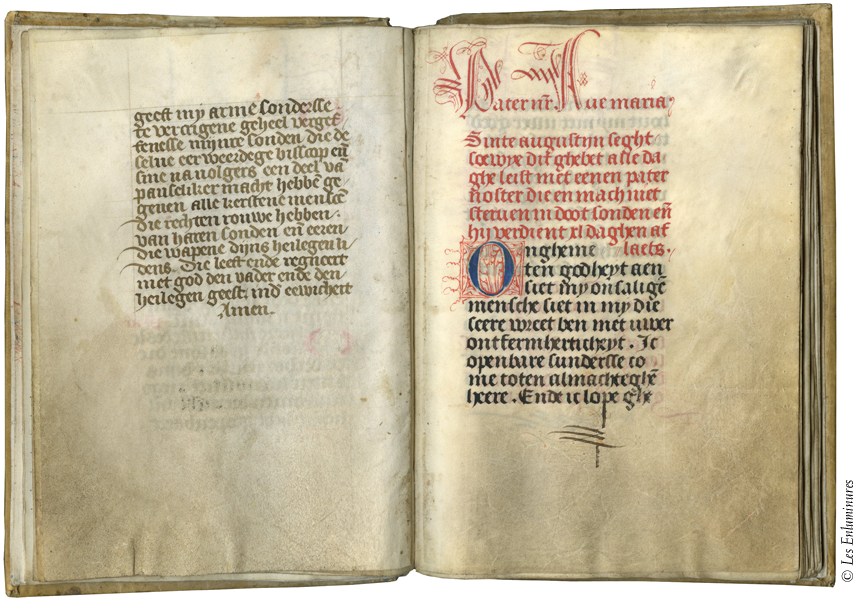 geest my arme sondersse
te vercrigene geheel verget
fenesse mynre sonden die de
selue eerweerdege bisscop en̄
sine nauolgers een deel vā
pauseliker macht hebbē ge
geuen alle kerstene menscē
die rechten rouwe hebben.
van haren sonden en̄ eeren
die wapene dijns heilegen li
dens. Die leeft ende regneert
met god den vader ende den
heilegen geest. ind eewicheit
Amen.
Pater nr̄ Aue maria.
Sinte augustyn seght
soe wye dit ghebet alle da
ghe leist met eenen pater
n̄oster die en mach niet
steruen in doot sonden en̄
hij verdient xl daghen af
laets.
Ongheme
ten godheyt aen
siet my onsaligē
mensche siet in my die
seere wreet ben met uwer
ontfermherticheyt. Ic
openbare sundersse co
me toten almacheghē
heere. Ende ic lope ghe
© Les Enluminures